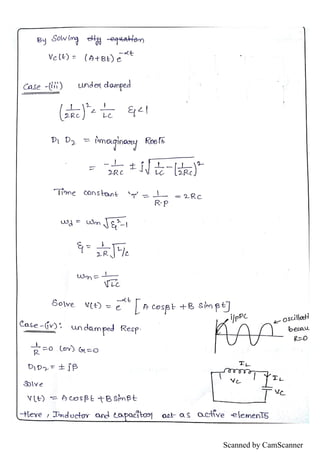 By Solving diff equation
Vc(t) = (A+Bt) e^-αt
Case-(iii) under damped
(1/2RC)² < 1/LC ξ<1
D1 D2 = imaginary Roots
= -1/2RC ± j√(1/LC - [1/2RC]²)
Time constant 'τ' = 1/R.P = 2RC
ωd = ωn √ξ²-1
ξ = 1/2R √L/C
ωn = 1/√LC
Solve V(t) = e^-αt [A cosβt + B sinβt]
Case-(iv): undamped Resp.
i/pDC
oscillati
becau
R=0
1/R = 0 (or) G=0
D1D2 = ± jβ
Solve
V(t) = A cosβt + B Sinβt
IL
VC
IL
VC
Here, Inductor and capacitor act as active elements
Scanned by CamScanner